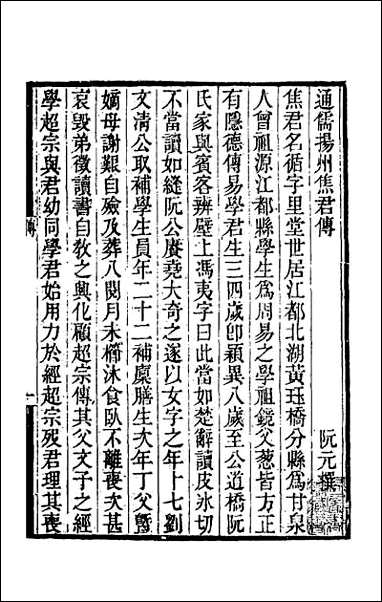 通儒揚州焦君傳
阮元撰
焦君名循字里堂世居江都北湖黃珏橋分縣爲甘泉
人曾祖源江都縣學生爲周易之學祖鏡父蔥皆方正
有隱德傳易學君生三四歲卽穎異八歲至公道橋阮
氏家與賓客辨壁上馮夷字曰此當如楚辭讀皮冰切
不當讀如縫阮公賡堯大奇之遂以女字之年十七劉
文清公取補學生員年二十二補廩膳生次年丁父暨
嫡母謝艱自殮及葬八閱月未櫛沐食臥不離喪次甚
哀毀弟徵讀書自敎之與化顧超宗傳其父文子之經
學超宗與君幼同學君始用力於經超宗歿君理其喪
傳
一